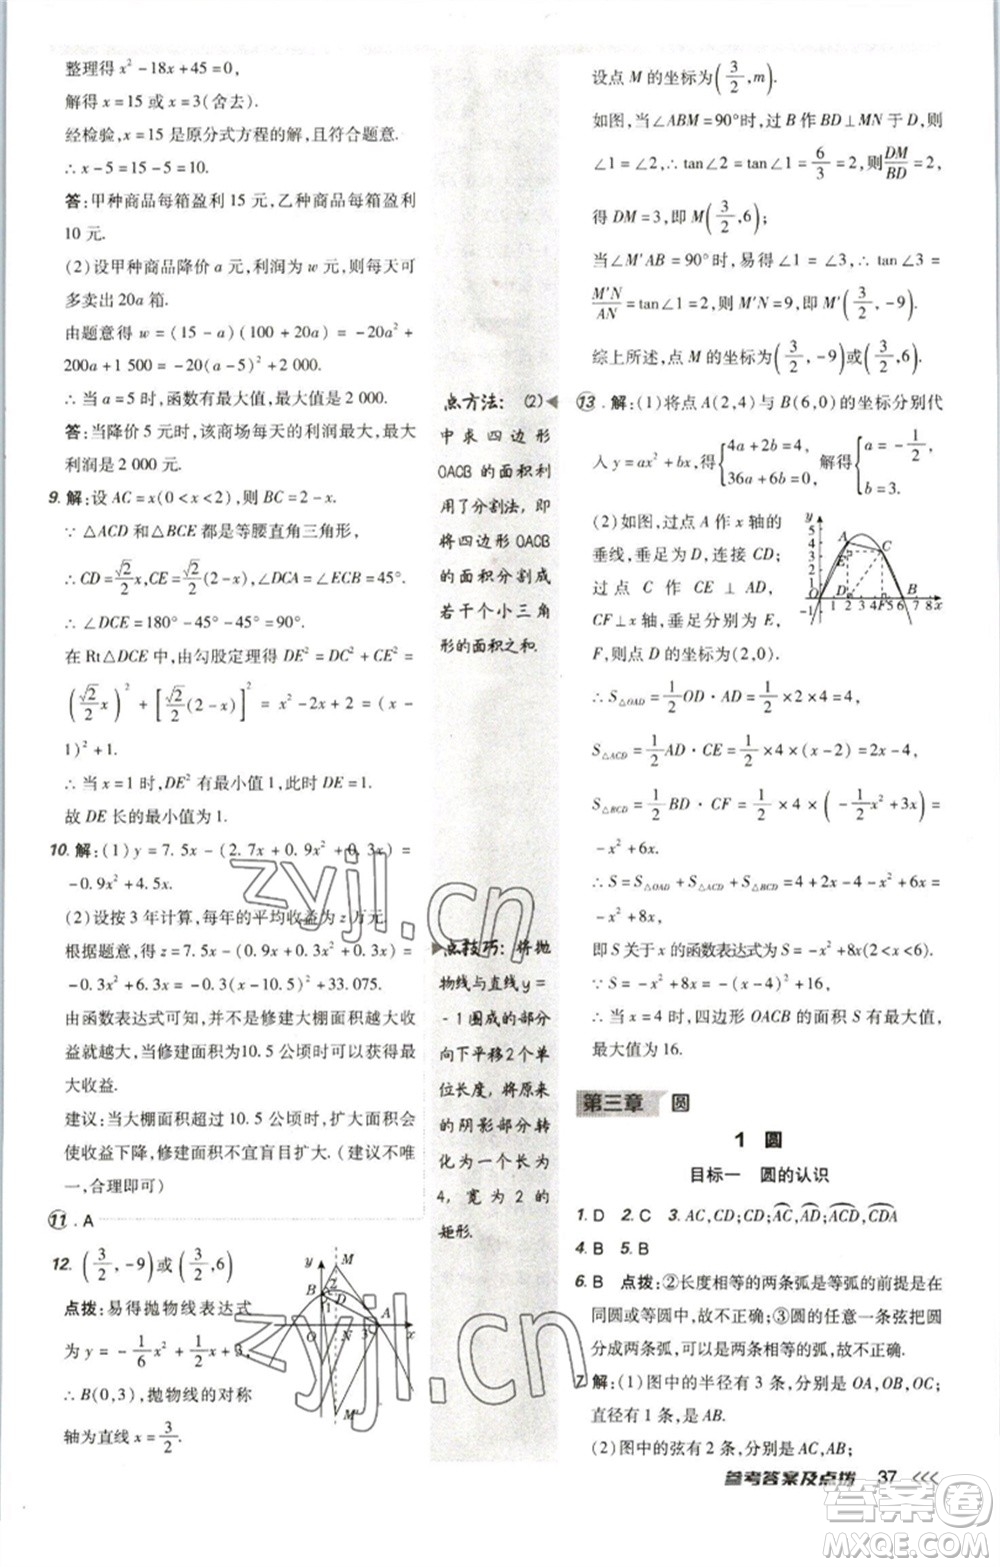 整理得 x²-18x+45=0,
解得 x=15 或 x=3(舍去).
经检验,x=15 是原分式方程的解,且符合题意.
∴ x-5=15-5=10.
答:甲种商品每箱盈利 15 元,乙种商品每箱盈利
10 元.
(2)设甲种商品降价 a 元,利润为 w 元,则每天可
多卖出 20a 箱.
由题意得 w=(15-a)(100+20a)=-20a²+
200a+1 500=-20(a-5)²+2 000.
∴ 当 a=5 时,函数有最大值,最大值是 2 000.
答:当降价 5 元时,该商场每天的利润最大,最大
利润是 2 000 元.
9. 解:设 AC=x(0<x<2),则 BC=2-x.
∵ △ACD 和△BCE 都是等腰直角三角形,
∴ CD=√2/2 x,CE=√2/2(2-x),∠DCA=∠ECB=45°.
∴ ∠DCE=180°-45°-45°=90°.
在 Rt△DCE 中,由勾股定理得 DE²=DC²+CE²=
(√2/2 x)²+[√2/2(2-x)]²=x²-2x+2=(x-
1)²+1.
∴ 当 x=1 时,DE²有最小值 1,此时 DE=1.
故 DE 长的最小值为 1.
10. 解:(1)y=7.5x-(2.7x+0.9x²+0.3x)=
-0.9x²+4.5x.
(2)设按 3 年计算,每年的平均收益为 z 万元.
根据题意,得 z=7.5x-(0.9x+0.3x²+0.3x)=
-0.3x²+6.3x=-0.3(x-10.5)²+33.075.
由函数表达式可知,并不是修建大棚面积越大收
益就越大,当修建面积为10.5 公顷时可以获得最
大收益.
建议:当大棚面积超过 10.5 公顷时,扩大面积会
使收益下降,修建面积不宜盲目扩大.(建议不唯
一,合理即可)
11. A
12. (3/2,-9)或(3/2,6)
点拨:易得抛物线表达式
为 y=-1/6x²+1/2x+3,
∴ B(0,3),抛物线的对称
轴为直线 x=3/2.
y
M
B
2
D
1
O
N
3
A
x
M'
点方法:(2)
中求四边形
OACB 的面积利
用了分割法,即
将四边形 OACB
的面积分割成
若干个小三角
形的面积之和.
点技巧:将抛
物线与直线 y=
-1 围成的部分
向下平移 2 个单
位长度,将原来
的阴影部分转
化为一个长为
4,宽为 2 的
矩形.
设点 M 的坐标为(3/2,m).
如图,当∠ABM=90°时,过 B 作 BD⊥MN 于 D,则
∠1=∠2,∴ tan∠2=tan∠1=6/3=2,则DM/BD=2,
得 DM=3,即 M(3/2,6);
当∠M'AB=90°时,易得∠1=∠3,∴
M'N/AN=tan∠1=2,∴ M'N=9,即 M'(3/2,-9).
综上所述,点 M 的坐标为(3/2,-9)或(3/2,6).
13. 解:(1)将点 A(2,4)与 B(6,0)的坐标分别代
入 y=ax²+bx,得{4a+2b=4, 36a+6b=0, 解得{a=-1/2, b=3.
(2)如图,过点 A 作 x 轴的
垂线,垂足为 D,连接 CD;
过点 C 作 CE⊥AD,CF⊥
x 轴,垂足分别为 E,
F,则点 D 的坐标为(2,0).
y
5
4
3
2
1
-1
A
E
C
O
D
F
B
1 2 3 4 5 6 7 8 x
∴ S△OAD=1/2OD·AD=1/2×2×4=4,
S△ACD=1/2AD·CE=1/2×4×(x-2)=2x-4,
S△BCD=1/2BD·CF=1/2×4×(-1/2x²+3x)=
-x²+6x.
∴ S=S△OAD+S△ACD+S△BCD=4+2x-4-x²+6x=
-x²+8x.
即 S 关于 x 的函数表达式为 S=-x²+8x(2<x<6).
∵ S=-x²+8x=-(x-4)²+16,
∴ 当 x=4 时,四边形 OACB 的面积 S 有最大值,
最大值为 16.
第三章 圆
1 圆
目标一 圆的认识
1. D 2. C 3. AC,CD;CD;AC⌒,AD⌒,ACD⌒,CDA⌒
4. B 5. B
6. B 点拨:②长度相等的两条弧是等弧的前提是在
同圆或等圆中,故不正确;③圆的任意一条弦把圆
分成两条弧,可以是两条半圆的弧,故不正确.
7. 解:(1)图中的半径有 3 条,分别是 OA,OB,OC;
直径有 1 条,是 AB.
(2)图中的弦有 2 条,分别是 AC,AB;
参考答案及点拨 37
zyjl.cn
zyjl.cn
答案圈
MXQE.COM